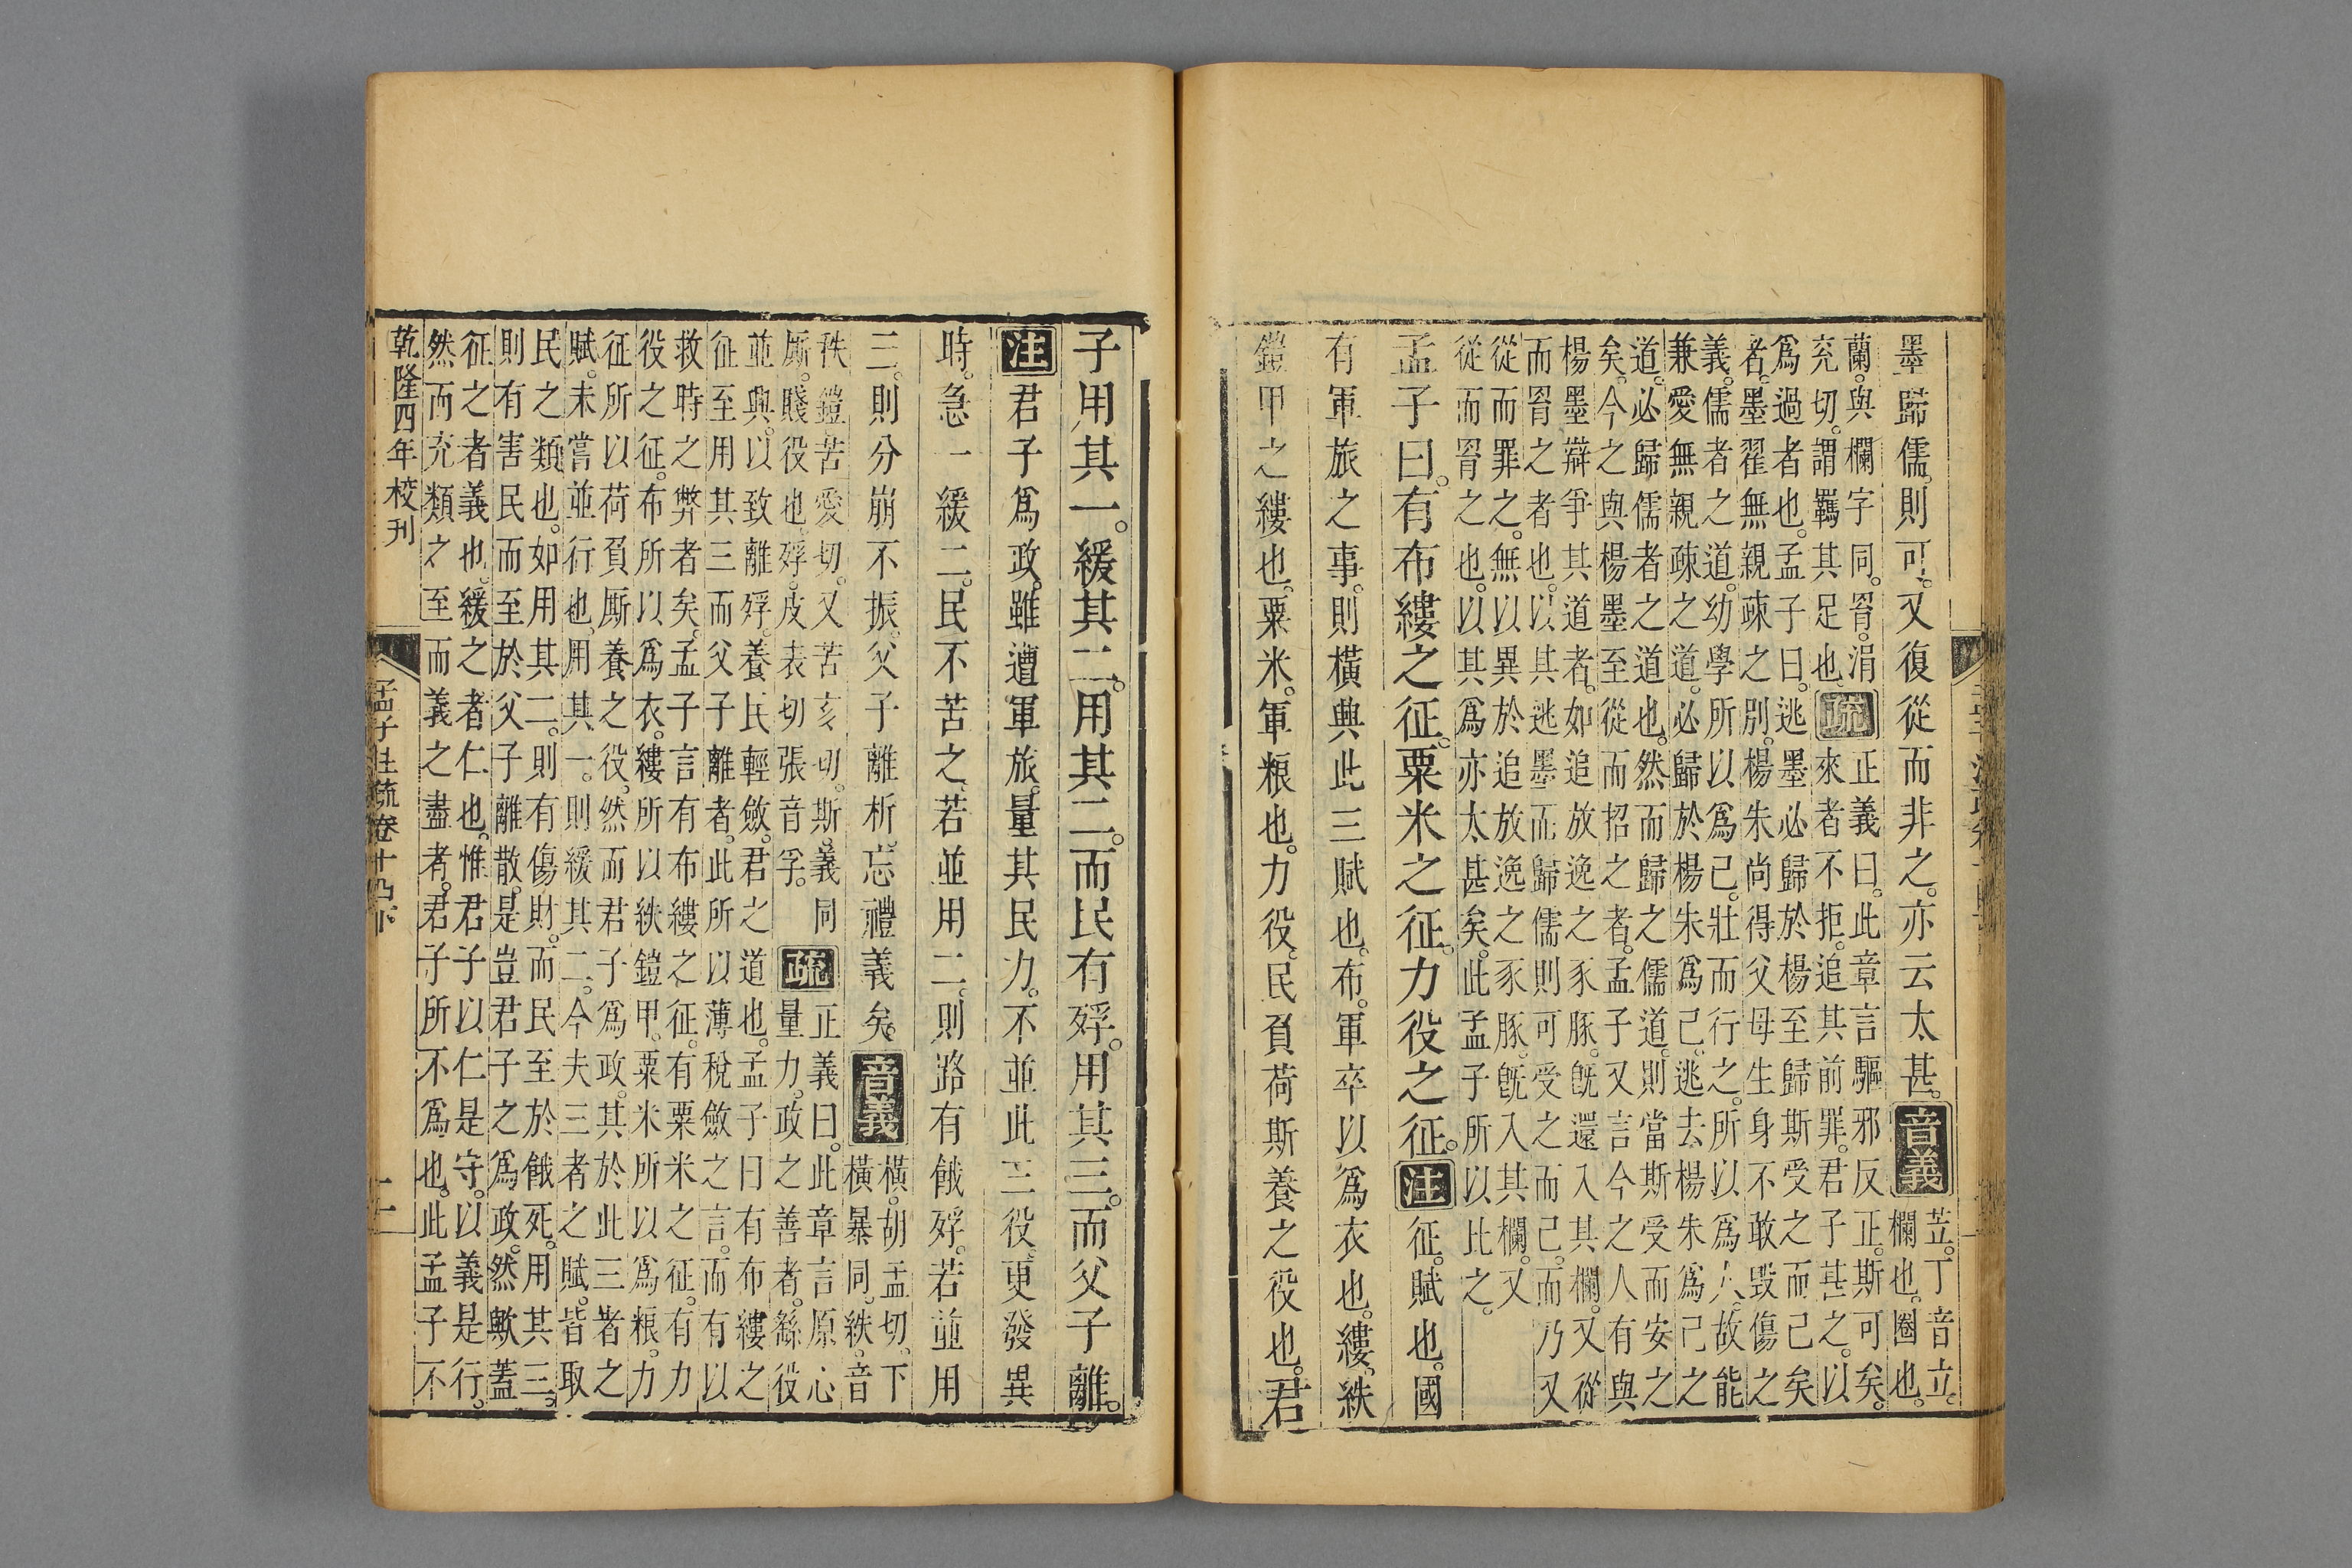 墨歸儒。則可。又復從而非之。亦云太甚。音義苙。丁音立。
欄也。圈也。
蘭。與欄字同。罥。涓
充切。謂羈其足也。疏正義曰。此章言驅邪反正。斯可矣。
來者不拒。追其前罪。君子甚之。以
爲過者也。孟子曰。逃墨必歸於楊至歸斯受之而已矣
者。墨翟無親疎之別。楊朱尚得父母生身不敢毁傷之
義。儒者之道。幼學所以爲己。壯而行之。所以爲人。故能
兼愛無親疎之道。必歸於楊朱爲己。逃去楊朱爲己之
道。必歸儒者之道也。然而歸之儒道。則當斯受而安之
矣。今之與楊墨至從而招之者。孟子又言今之人有與
楊墨辯爭其道者。如追放逸之豕豚。旣還入其欄。又從
而罥之者也。以其逃墨而歸儒則可受之而已。而乃又
從而罪之。無以異於追放逸之豕豚。旣入其欄。又
從而罥之也。以其爲亦太甚矣。此孟子所以比之。
孟子曰。有布縷之征。粟米之征。力役之征。注征。賦也。國
有軍旅之事。則橫興此三賦也。布。軍卒以爲衣也。縷。紩
鎧甲之縷也。粟米。軍粮也。力役。民負荷斯養之役也。君
子用其一。緩其二。用其二。而民有殍。用其三。而父子離。
注君子爲政。雖遭軍旅。量其民力。不並此三役。更發異
時。急一緩二。民不苦之。若並用二。則路有餓殍。若並用
三。則分崩不振。父子離析。忘禮義矣。音義橫。胡孟切。下
橫暴同。紩。音
秩。鎧。苦愛切。又苦亥切。斯。義同
厮。賤役也。殍。皮表切。張音孚。疏正義曰。此章言原心
量力。政之善者。繇役
並興。以致離殍。養民輕斂。君之道也。孟子曰有布縷之
征至用其三而父子離者。此所以薄稅斂之言。而有以
救時之弊者矣。孟子言有布縷之征。有粟米之征。有力
役之征。布所以爲衣。縷所以紩鎧甲。粟米所以爲粮。力
征所以荷負厮養之役。然而君子爲政。其於此三者之
賦。未嘗並行也。用其一。則緩其二。今夫三者之賦。皆取
民之類也。如用其二。則有傷財。而民至於餓死。用其三。
則有害民而至於父子離散。是豈君子之爲政。然歟蓋
征之者義也。緩之者仁也。惟君子以仁是守。以義是行。
然而充類之至而義之盡者。君子所不爲也。此孟子不
乾隆四年校刊
孟子注疏卷十四下